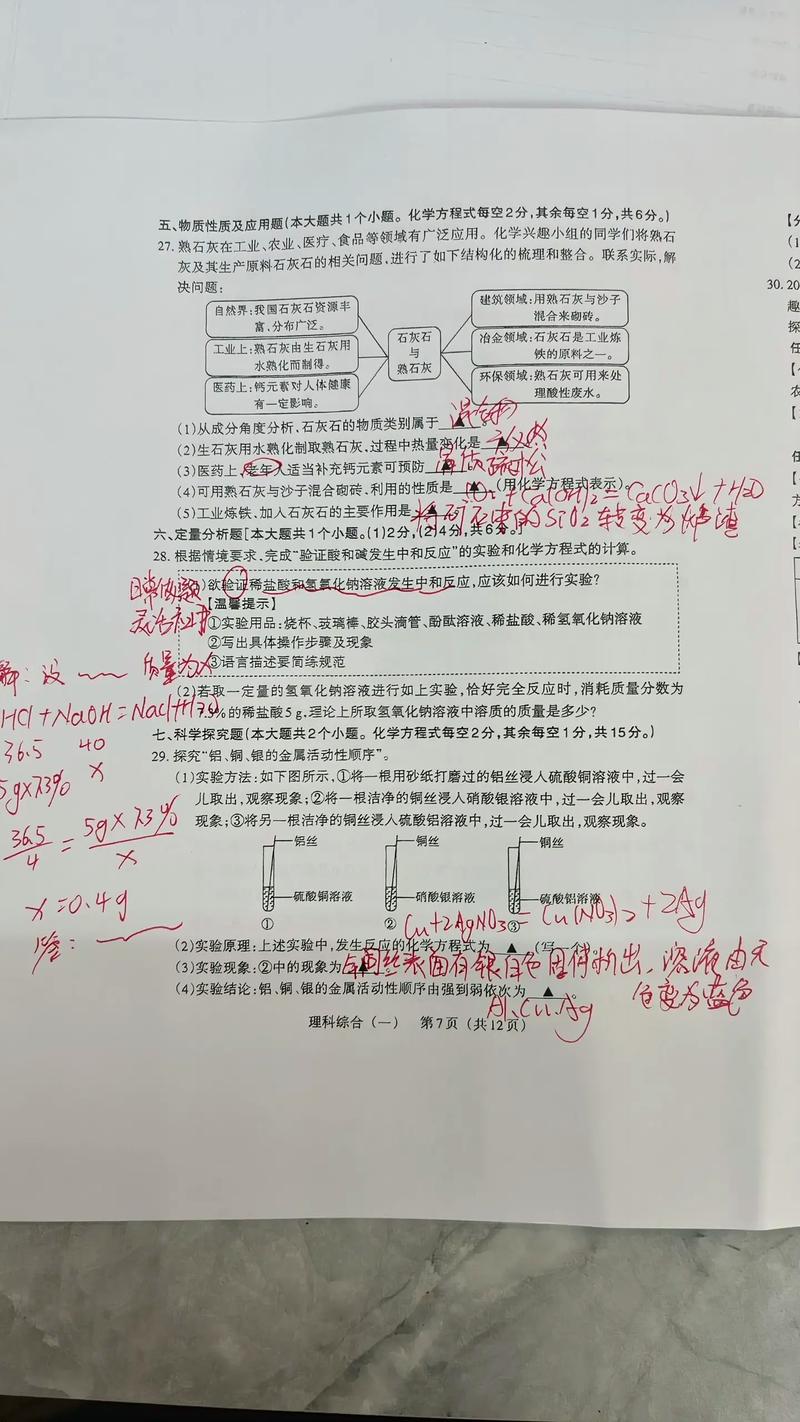 五、物质性质及应用题(本大题共1个小题。化学方程式每空2分,其余每空1分,共6分。)
27.熟石灰在工业、农业、医疗、食品等领域有广泛应用。化学兴趣小组的同学们将熟石
灰及其生产原料石灰石的相关问题,进行了如下结构化的梳理和整合。联系实际,解
决问题:
自然界:我国石灰石资源丰
富、分布广泛。
工业上:熟石灰由生石灰用
水熟化而制得。
医药上:钙元素对人体健康
有一定影响。
石灰石
与
熟石灰
建筑领域:用熟石灰与沙子
混合来砌砖。
冶金领域:石灰石是工业炼
铁的原料之一。
环保领域:熟石灰可用来处
理酸性废水。
(1)从成分角度分析,石灰石的物质类别属于▲。混合物
(2)生石灰用水熟化制取熟石灰,过程中热量变化是▲
(3)医药上,老年人适当补充钙元素可预防▲骨质疏松
(4)可用熟石灰与沙子混合砌砖,利用的性质是▲(用化学方程式表示)。CO₂+Ca(OH)₂=CaCO₃↓+H₂O
(5)工业炼铁,加入石灰石的主要作用是▲将矿石中的SiO₂转变为炉渣
六、定量分析题[本大题共1个小题。(1)2分,(2)4分,共6分。]
28.根据情境要求,完成“验证酸和碱发生中和反应”的实验和化学方程式的计算。
)欲验证稀盐酸和氢氧化钠溶液发生中和反应,应该如何进行实验?
【温馨提示】
①实验用品:烧杯、玻璃棒、胶头滴管、酚酞溶液、稀盐酸、稀氢氧化钠溶液
②写出具体操作步骤及现象
③语言描述要简练规范
解:设 质量为x
HCl+NaOH=NaCl+H₂O
36.5 40
5g×7.3% x
36.5/4=5g×7.3%/x
x=0.4g
答:
(2)若取一定量的氢氧化钠溶液进行如上实验,恰好完全反应时,消耗质量分数为
7.3%的稀盐酸5 g,理论上所取氢氧化钠溶液中溶质的质量是多少?
七、科学探究题(本大题共2个小题。化学方程式每空2分,其余每空1分,共15分。)
29.探究“铝、铜、银的金属活动性顺序”。
(1)实验方法:如下图所示,①将一根用砂纸打磨过的铝丝浸入硫酸铜溶液中,过一会
儿取出,观察现象;②将一根洁净的铜丝浸入硝酸银溶液中,过一会儿取出,观察
现象;③将另一根洁净的铜丝浸入硫酸铝溶液中,过一会儿取出,观察现象。
铝丝
硫酸铜溶液
①
铜丝
硝酸银溶液
②
铜丝
硫酸铝溶液
③
Cu+2AgNO₃=Cu(NO₃)₂+2Ag
(2)实验原理:上述实验中,发生反应的化学方程式为▲(写一个)。
(3)实验现象:②中的现象为▲铜丝表面有银白色固体析出、溶液由无
色变为蓝色
(4)实验结论:铝、铜、银的金属活动性顺序由强到弱依次为▲。
Al、Cu、Ag
理科综合(一) 第7页(共12页)
30.20
趣
探
任